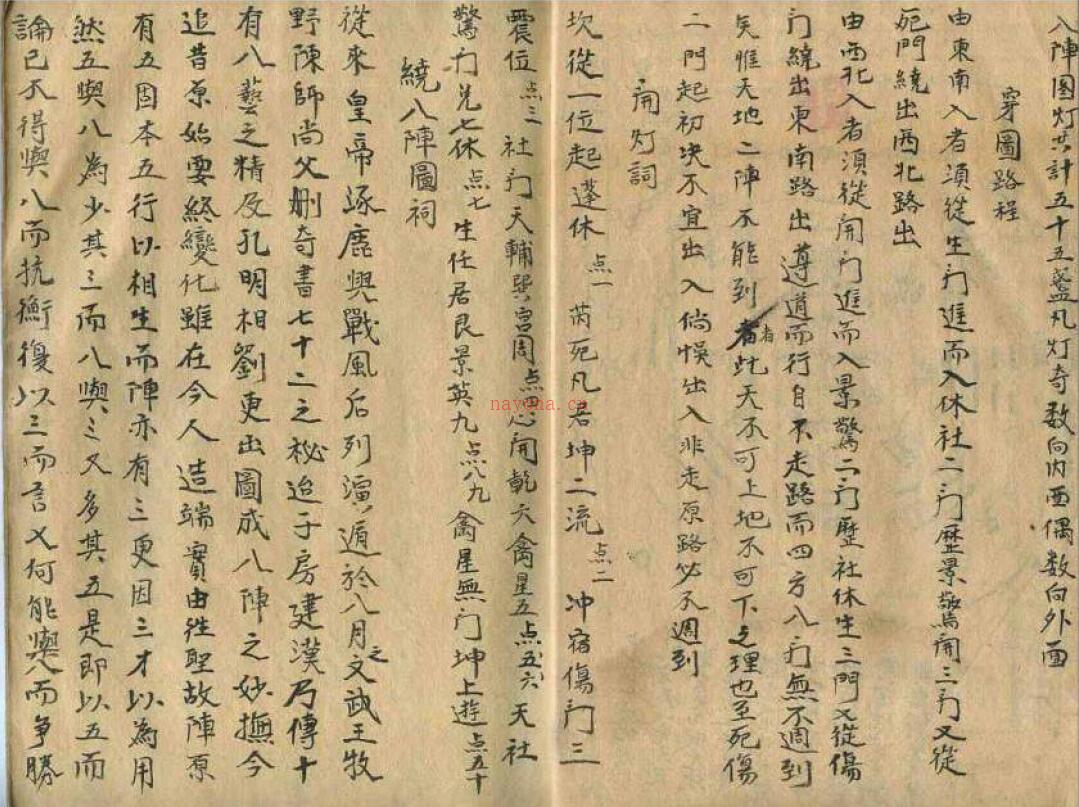 入陣图灯共计五十五盏凡灯奇数向内面偶数向外面
穿圖路程
由東南入者須從生门進而入休社二门歷景驚開三门又從
死門繞出西北路出
由西北入者須從開门進而入景驚二门歷社休生三門又從傷
门繞出東南路出遵道而行自不走路而四方八门無不週到
矣惟天地二陣不能到者此天不可上地不可下之理也至死傷
二門起初决不宜出入倘悞出入非走原路必不週到
開灯詞
坎從一位起蓬休点一芮死凡居坤二流点二冲宿傷门三
震位点三社门天輔巽宫周点四心開乾六禽星五点五六天社
驚门兑七休点七生任居艮景英九点八九禽星無门坤上遊点五十
繞八陣圖祠
從來皇帝逐鹿興戰風后列演遁於八月之文武王牧
野陳師尚父删奇書七十二之秘迨子房建漢乃傳十
有八藝之精及孔明相劉更出圖成八陣之妙撫今
追昔原始要終變化雖在今人造端實由往聖故陣原
有五因本五行以相生而陣亦有三更因三才以為用
然五與八為少其三而八與三又多其五是即以五而
論已不得與八而抗衡復以三而言又何能與八而争勝
nayona.cn